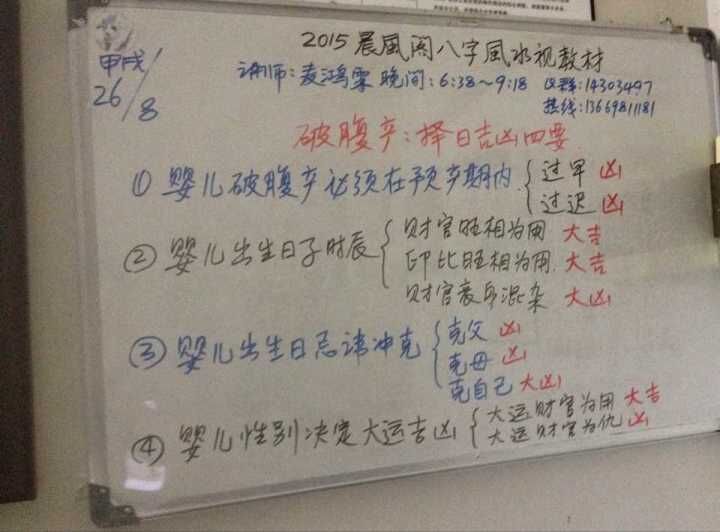 2015晨風阁八字風水视教材
甲戌
26/8
讲师:凌鸿霖 晚间:6:38~9:18
Q群:14303497
热线:13669811181
破腹产:择日吉凶四要
① 婴儿破腹产必须在预产期内
过早 凶
过迟 凶
② 婴儿出生日子时辰
财官旺相为用 大吉
印比旺相为用 大吉
财官衰弱混杂 大凶
③ 婴儿出生日忌讳冲克
克父 凶
克母 凶
克自己 大凶
④ 婴儿性别决定大运吉凶
大运财官为用 大吉
大运财官为仇 凶